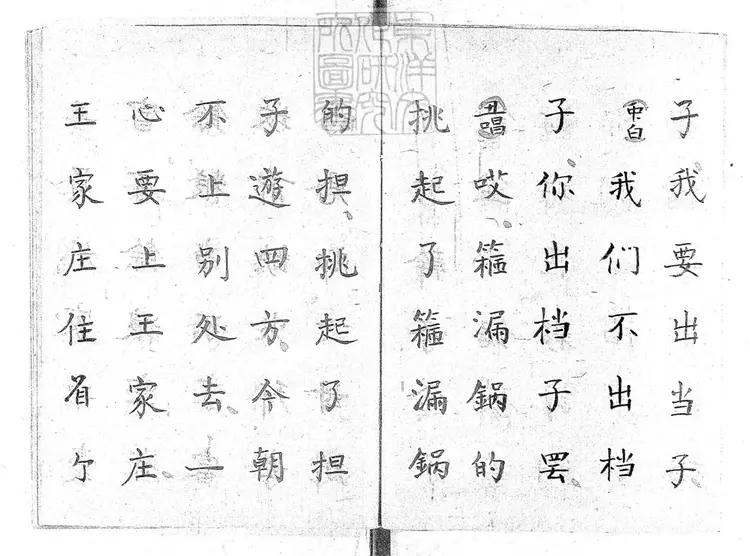 子我要出当子
㐅白我们不出档
子你出档子罢
丑唱哎箍漏鍋的
挑起了箍漏鍋
的担挑起了担
子遊四方今朝
不上别处去一
心要上王家庄
王家庄住着个